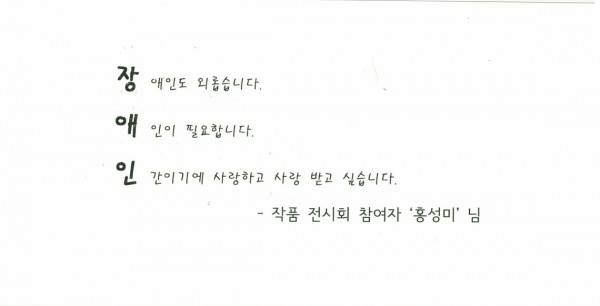 장 애인도 외롭습니다.
애 인이 필요합니다.
인 간이기에 사랑하고 사랑 받고 싶습니다.
- 작품 전시회 참여자 '홍성미' 님